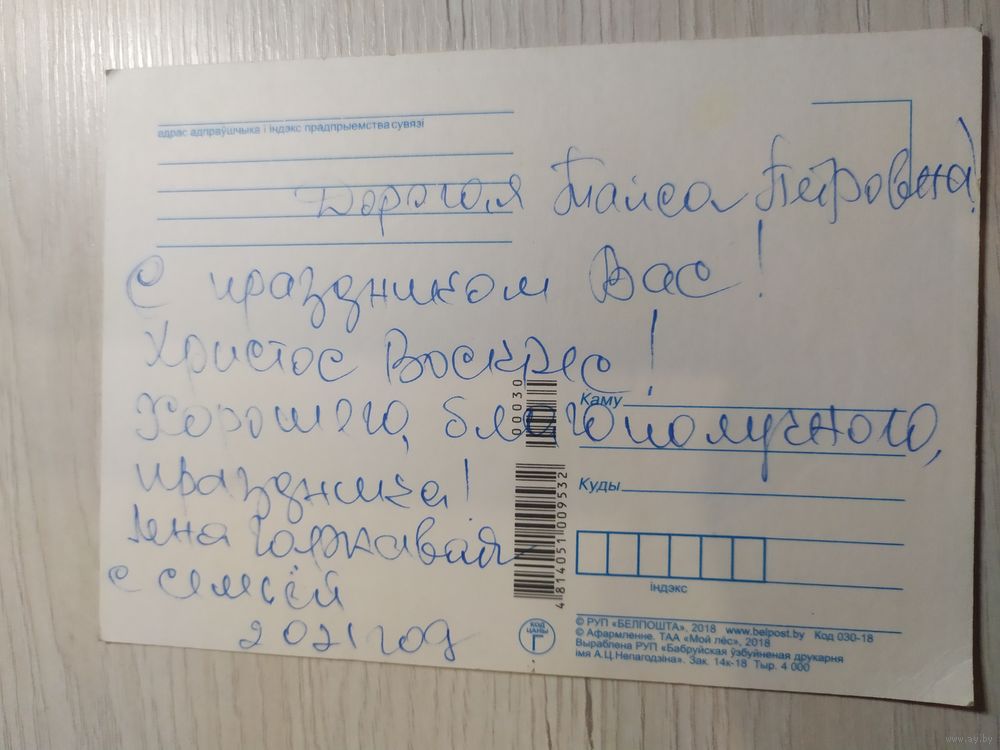 адрас адпраўшчыка і індэкс прадпрыемства сувязі
Дорогая Таиса Петровна!
С праздником Вас!
Христос Воскрес!
Хорошего, благополучного,
праздника!
с семьёй
2021 год
00030
4814051009532
Каму
Куды
індэкс
КОД ЦАНЫ
Г
© РУП «БЕЛПОШТА», 2018 www.belpost.by Код 030-18
© Афармленне. ТАА «Мой лёс», 2018
Выраблена РУП «Бабруйская ўзбуйненая друкарня
імя А.Ц.Непагодзіна». Зак. 14к-18 Тыр. 4 000
www.ay.by